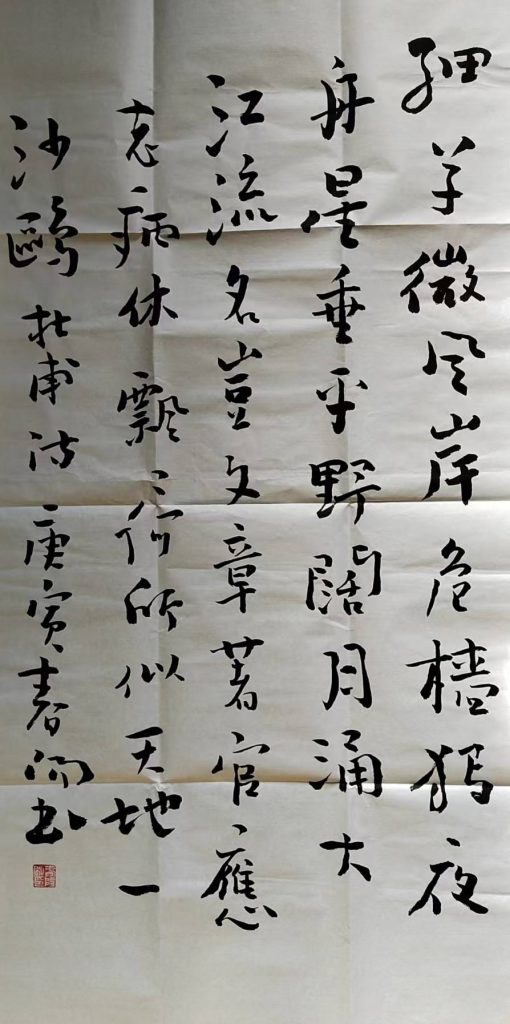 細草微风岸危檣獨夜
舟星垂平野闊月涌大
江流名豈文章著官應
老病休飄〻何所似天地一
沙鷗 杜甫詩 庚寅春書